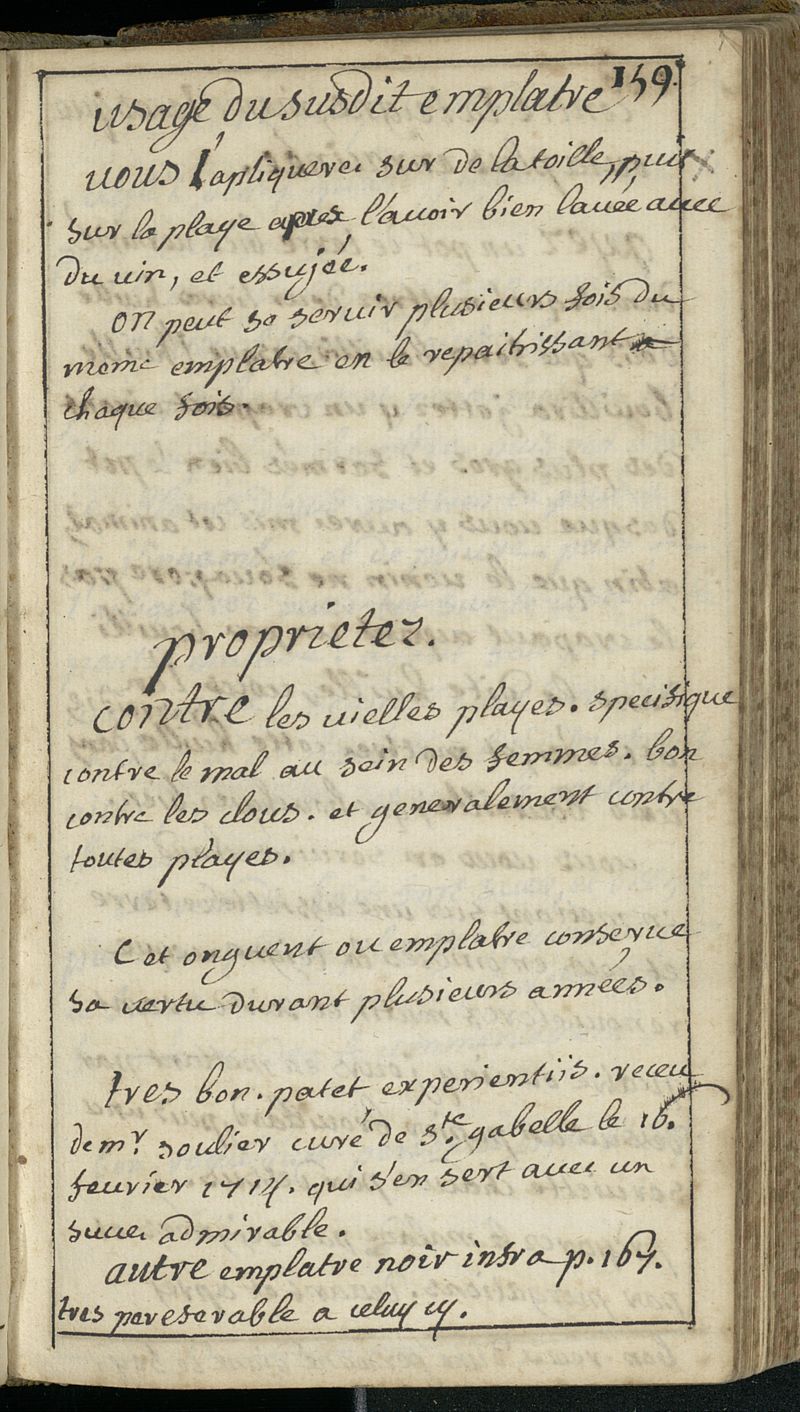 159.
usage du susdit emplatre
vous l'apliquerez sur de la toille, puis
sur la playe apres l'avoir bien lavéé avec
du vin, et essujéé.
on peut se servir plusieurs fois du
meme emplatre en le repaitrissant
chaque fois.
proprietez.
contre les vielles playes. specifique
contre le mal au sein des femmes. bon
contre les clous. et generalement contre
toutes playes.
Cet onguent ou emplatre conserve
sa vertu durant plusieurs années.
tres bon. patet experientiis. receu
de mr. soulier curé de ste. gabelle le 16.
fevrier 1714. qui s'en sert avec un
succez admirable.
autre emplatre noir infra p. 167.
tres pereferable a celuy cy.